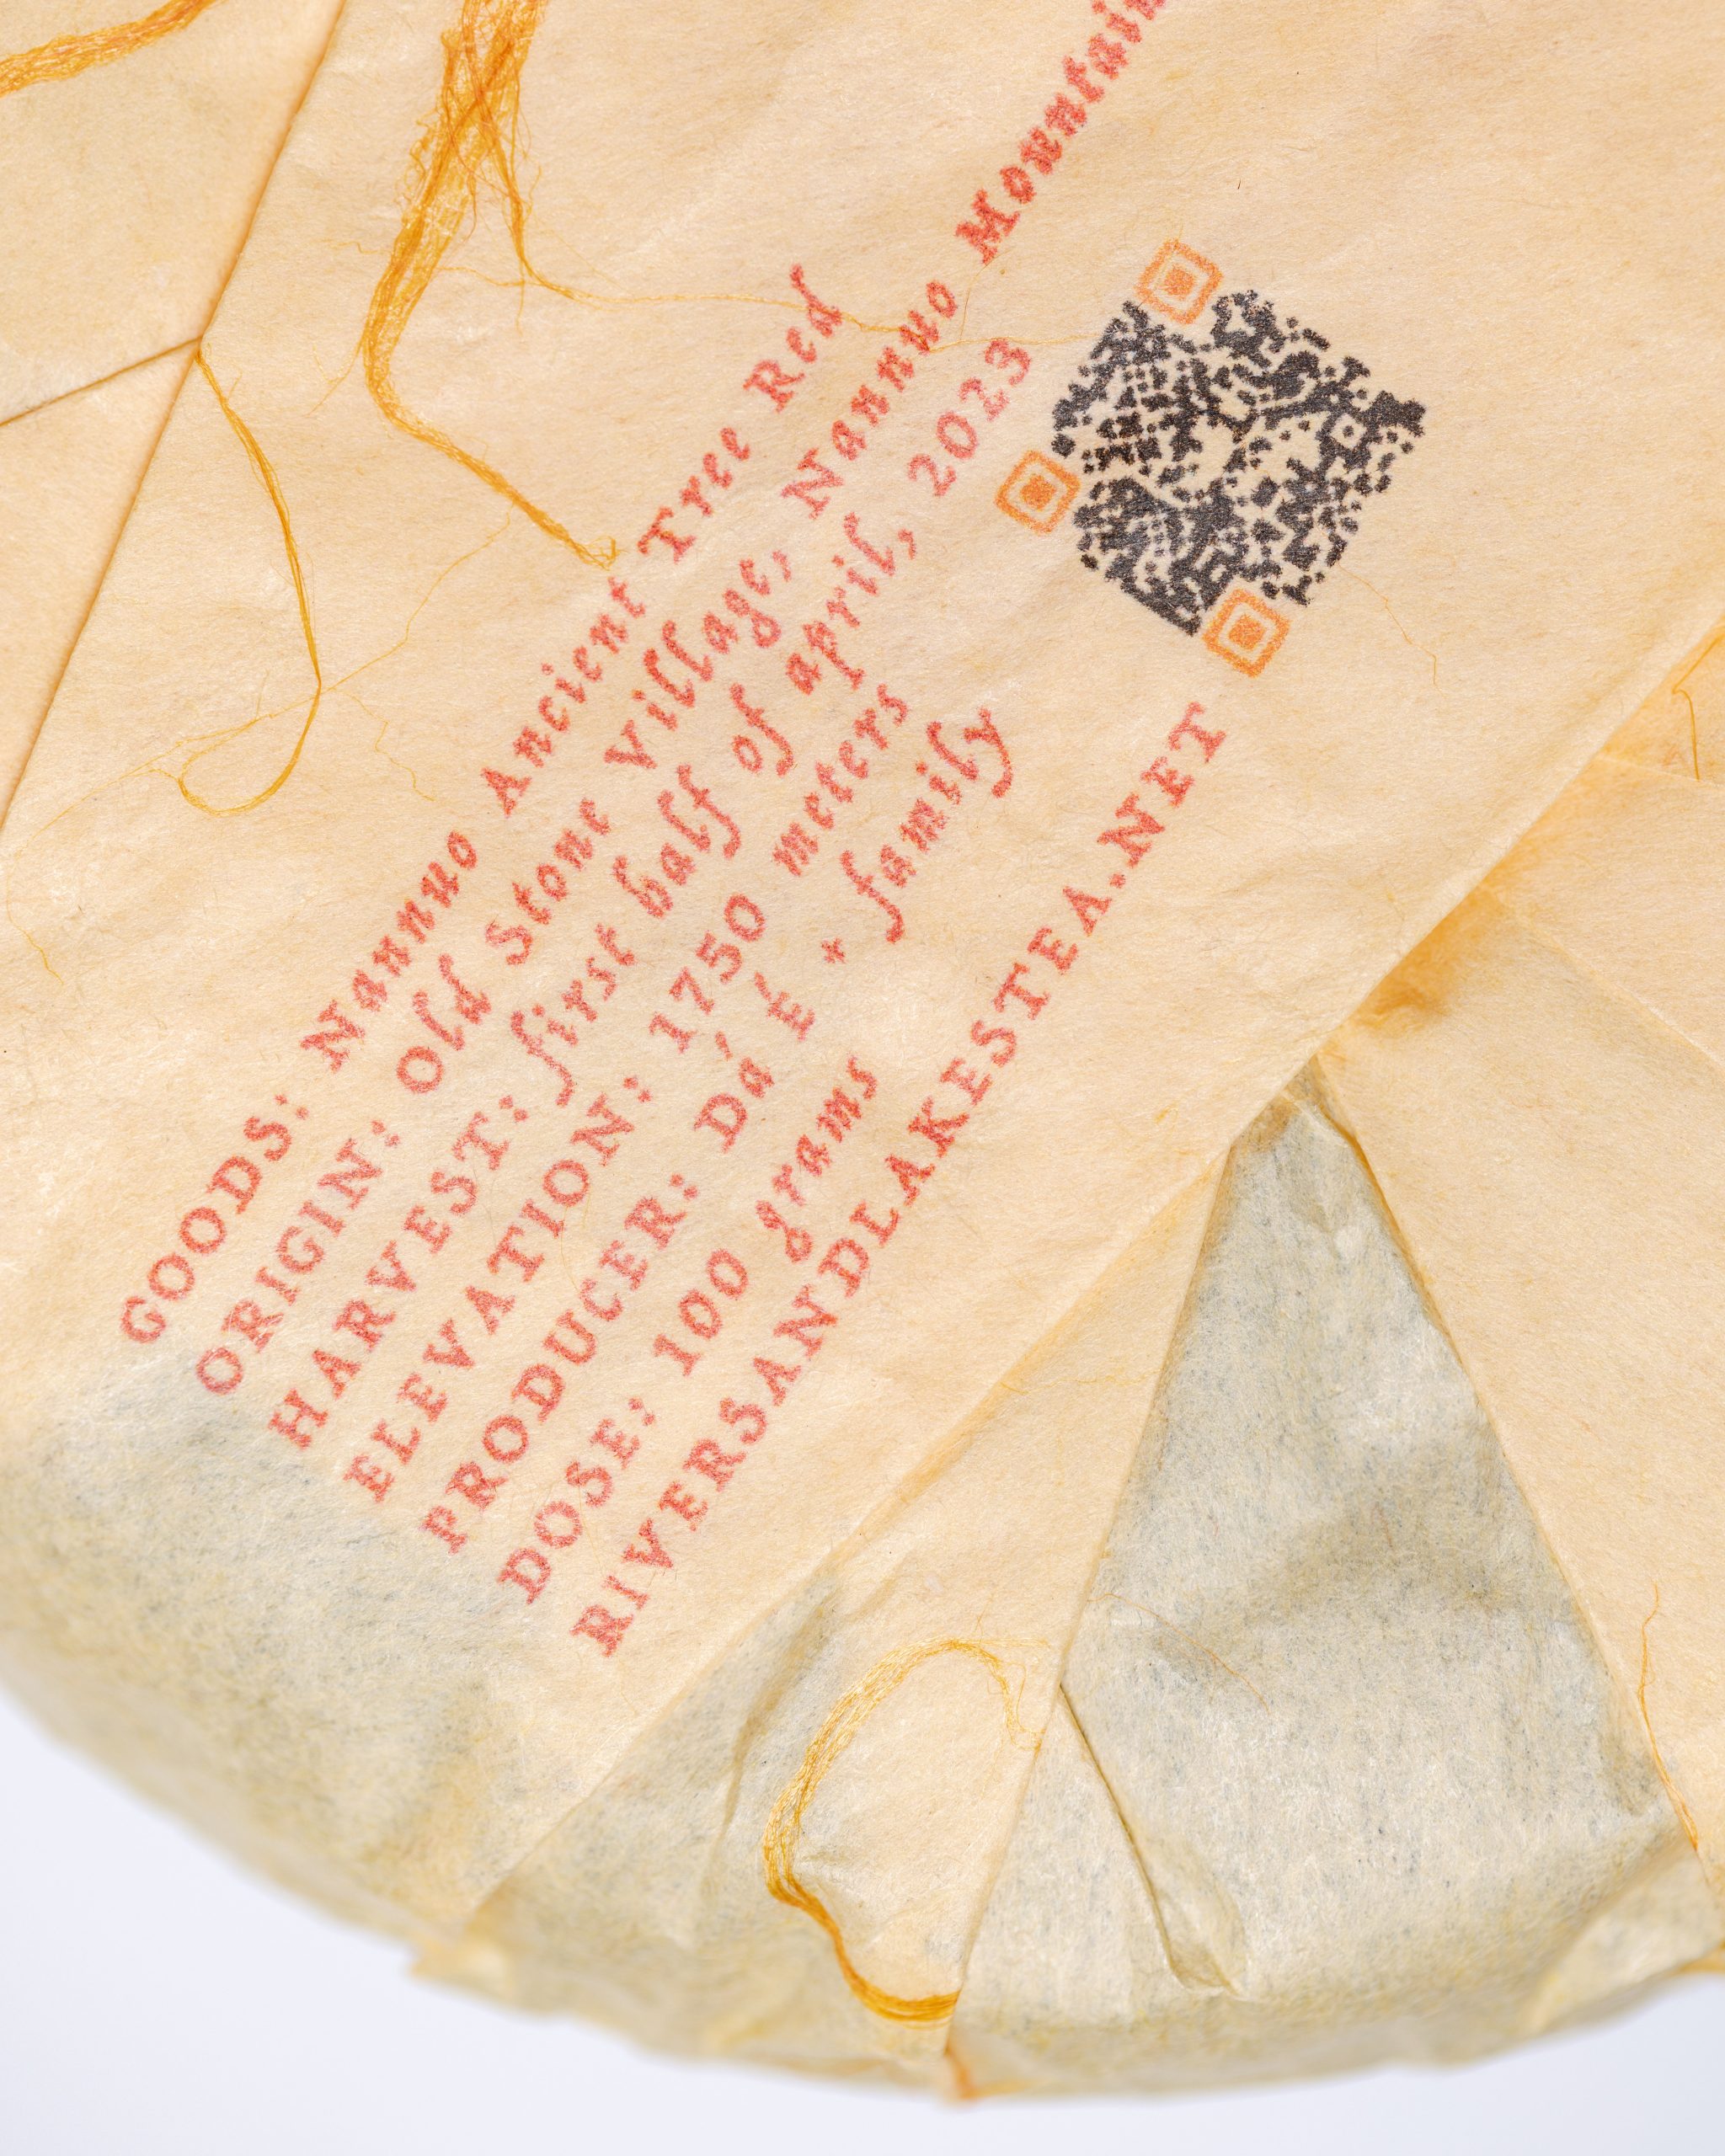 GOODS: Nannuo Ancient Tree Red
ORIGIN: Old Stone Village, Nannuo Mountain
HARVEST: first half of april, 2023
ELEVATION: 1750 meters
PRODUCER: Dá É + family
DOSE: 100 grams
RIVERSANDLAKESTEA.NET